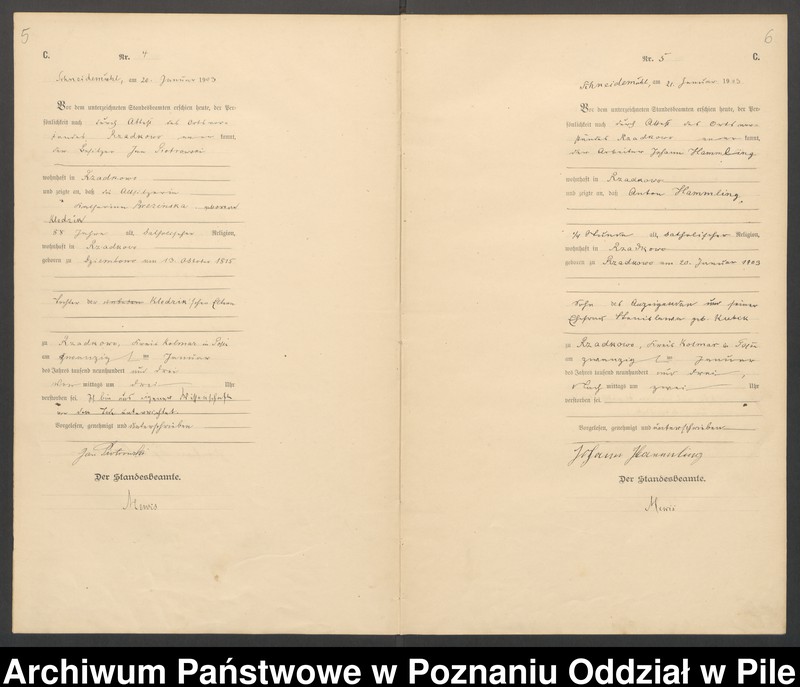 5
C.
Nr. 4
Schneidemühl, am 20. Januar 1903
Vor dem unterzeichneten Standesbeamten erschien heute, der Per-
sönlichkeit nach durch Attest des Ortsvor-
standes Rzadkowo kannt,
den Besitzer Jan Piotrowski
wohnhaft in Rzadkowo
und zeigte an, daß die
Katharina geborene
Kledzik
Jahre alt, katholischer Religion,
wohnhaft in Rzadkowo
geboren zu Dziembowo am 13. Oktober
Tochter der Kledzik'schen
zu Rzadkowo, Kreis Kolmar in
am zwanzigten Januar
des Jahres tausend neunhundert und drei
Vor mittags um drei Uhr
verstorben sei. Ich bin aus eigener Wissenschaft
von dem Tode unterrichtet.
Vorgelesen, genehmigt und unterschrieben
Jan Piotrowski
Der Standesbeamte.
Mewis
6
Nr. 5
C.
Schneidemühl, am 21. Januar 1903
Vor dem unterzeichneten Standesbeamten erschien heute, der Per-
sönlichkeit nach durch Attest des Ortsvor-
standes Rzadkowo kannt,
den Arbeiter Johann Hammling
wohnhaft in Rzadkowo
und zeigte an, daß Anton Hammling,
Stunde alt, katholischer Religion,
wohnhaft in Rzadkowo
geboren zu Rzadkowo am 20. Januar 1903
Sohn des Anzeigenden und seiner
Ehefrau Stanislawa geb.
zu Rzadkowo, Kreis Kolmar in
am zwanzigten Januar
des Jahres tausend neunhundert und drei,
Nach mittags um zwei Uhr
verstorben sei.
Vorgelesen, genehmigt und unterschrieben
Johann Hammling
Der Standesbeamte.
Mewis
Archiwum Państwowe w Poznaniu Oddział w Pile